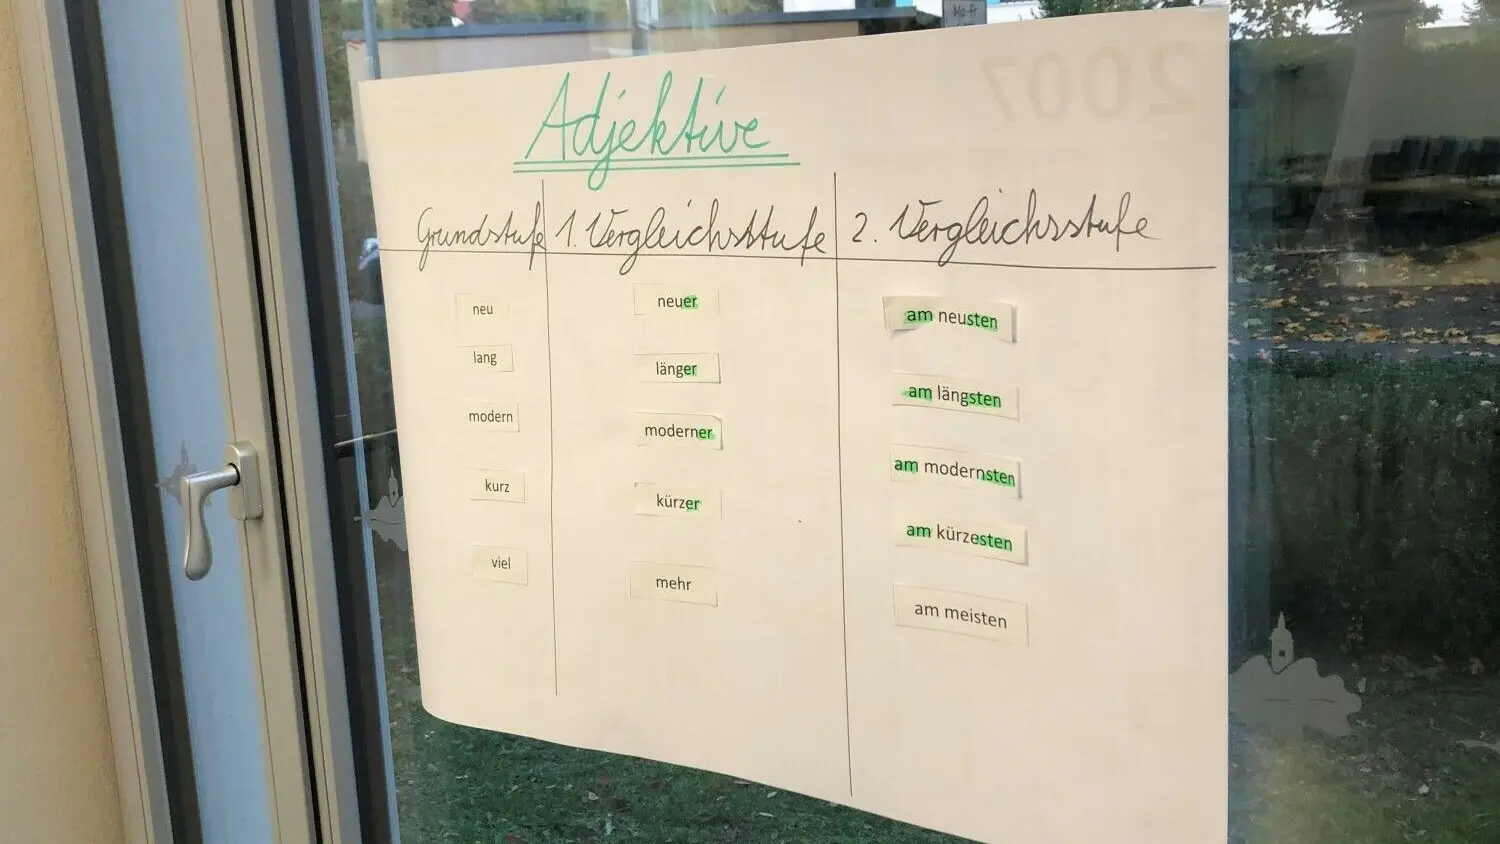 Mo-Fr
2007
Adjektive
Grundstufe 1. Vergleichsstufe 2. Vergleichsstufe
neu neuer am neusten
lang länger am längsten
modern moderner am modernsten
kurz kürzer am kürzesten
viel mehr am meisten